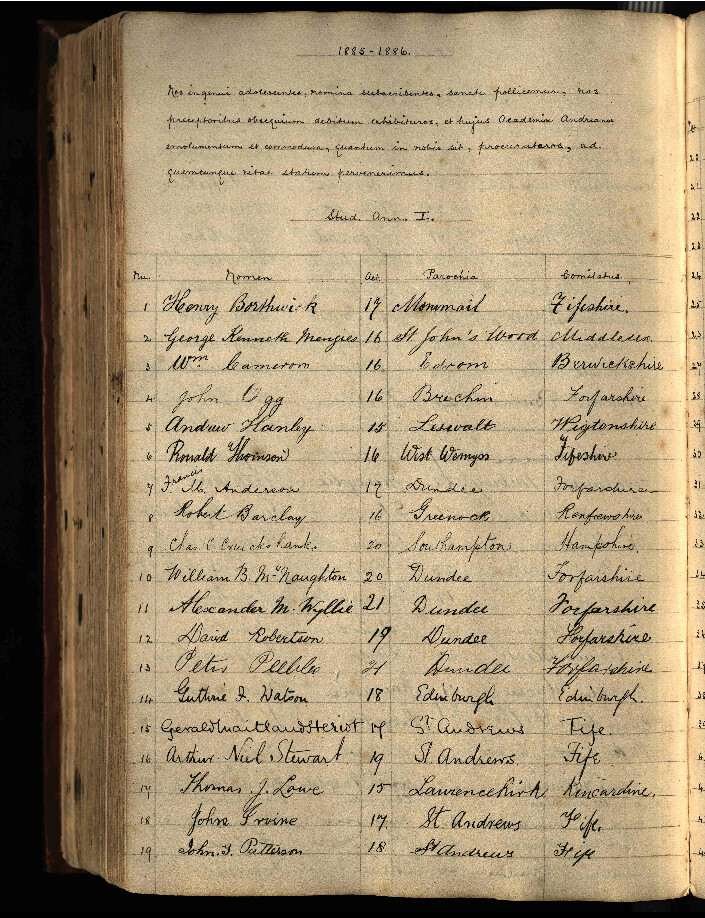 1885-1886.
Nos ingenui adolescentes, nomina subscribentes, sancte pollicemur, nos
preceptoribus obsequium debitum exhibituros, et hujus Academiæ Andreanæ
emolumentum et commodum, quantum in nobis sit, procuraturos, ad
quemcunque vitæ statum pervenerimus.
Stud. Ann. I.
Nu. Nomen Aet. Parochia Comitatus.
1 Henry Borthwick 17 Fifeshire.
2 George Kenneth Menzies 16 St John's Wood Middlesex
3 Wm Cameron 16 Edrom Berwickshire
4 John Ogg 16 Brechin Forfarshire
5 Andrew Hanley 15 Leswalt Wigtonshire
6 Ronald Thomson 16 West Wemyss Fifeshire
7 Francis M. Anderson 17 Dundee Forfarshire
8 Robert Barclay 16 Greenock Renfrewshire
9 Chas C. Cruickshank. 20 Southampton Hampshire
10 William B. McNaughton 20 Dundee Forfarshire
11 Alexander M. Wyllie 21 Dundee Forfarshire
12 David Robertson 19 Dundee Forfarshire
13 Peter Peebles, 21 Dundee Forfarshire
14 Guthrie J. Watson 18 Edinburgh Edinburgh.
15 Gerald Maitland Heriot 17 St Andrews Fife
16 Arthur Niel Stewart 19 St. Andrews. Fife
17 Thomas J. Lowe 15 Laurencekirk Kincardine.
18 John Irvine 17. St Andrews Fife.
19 John. F. Patterson 18 St Andrews Fife